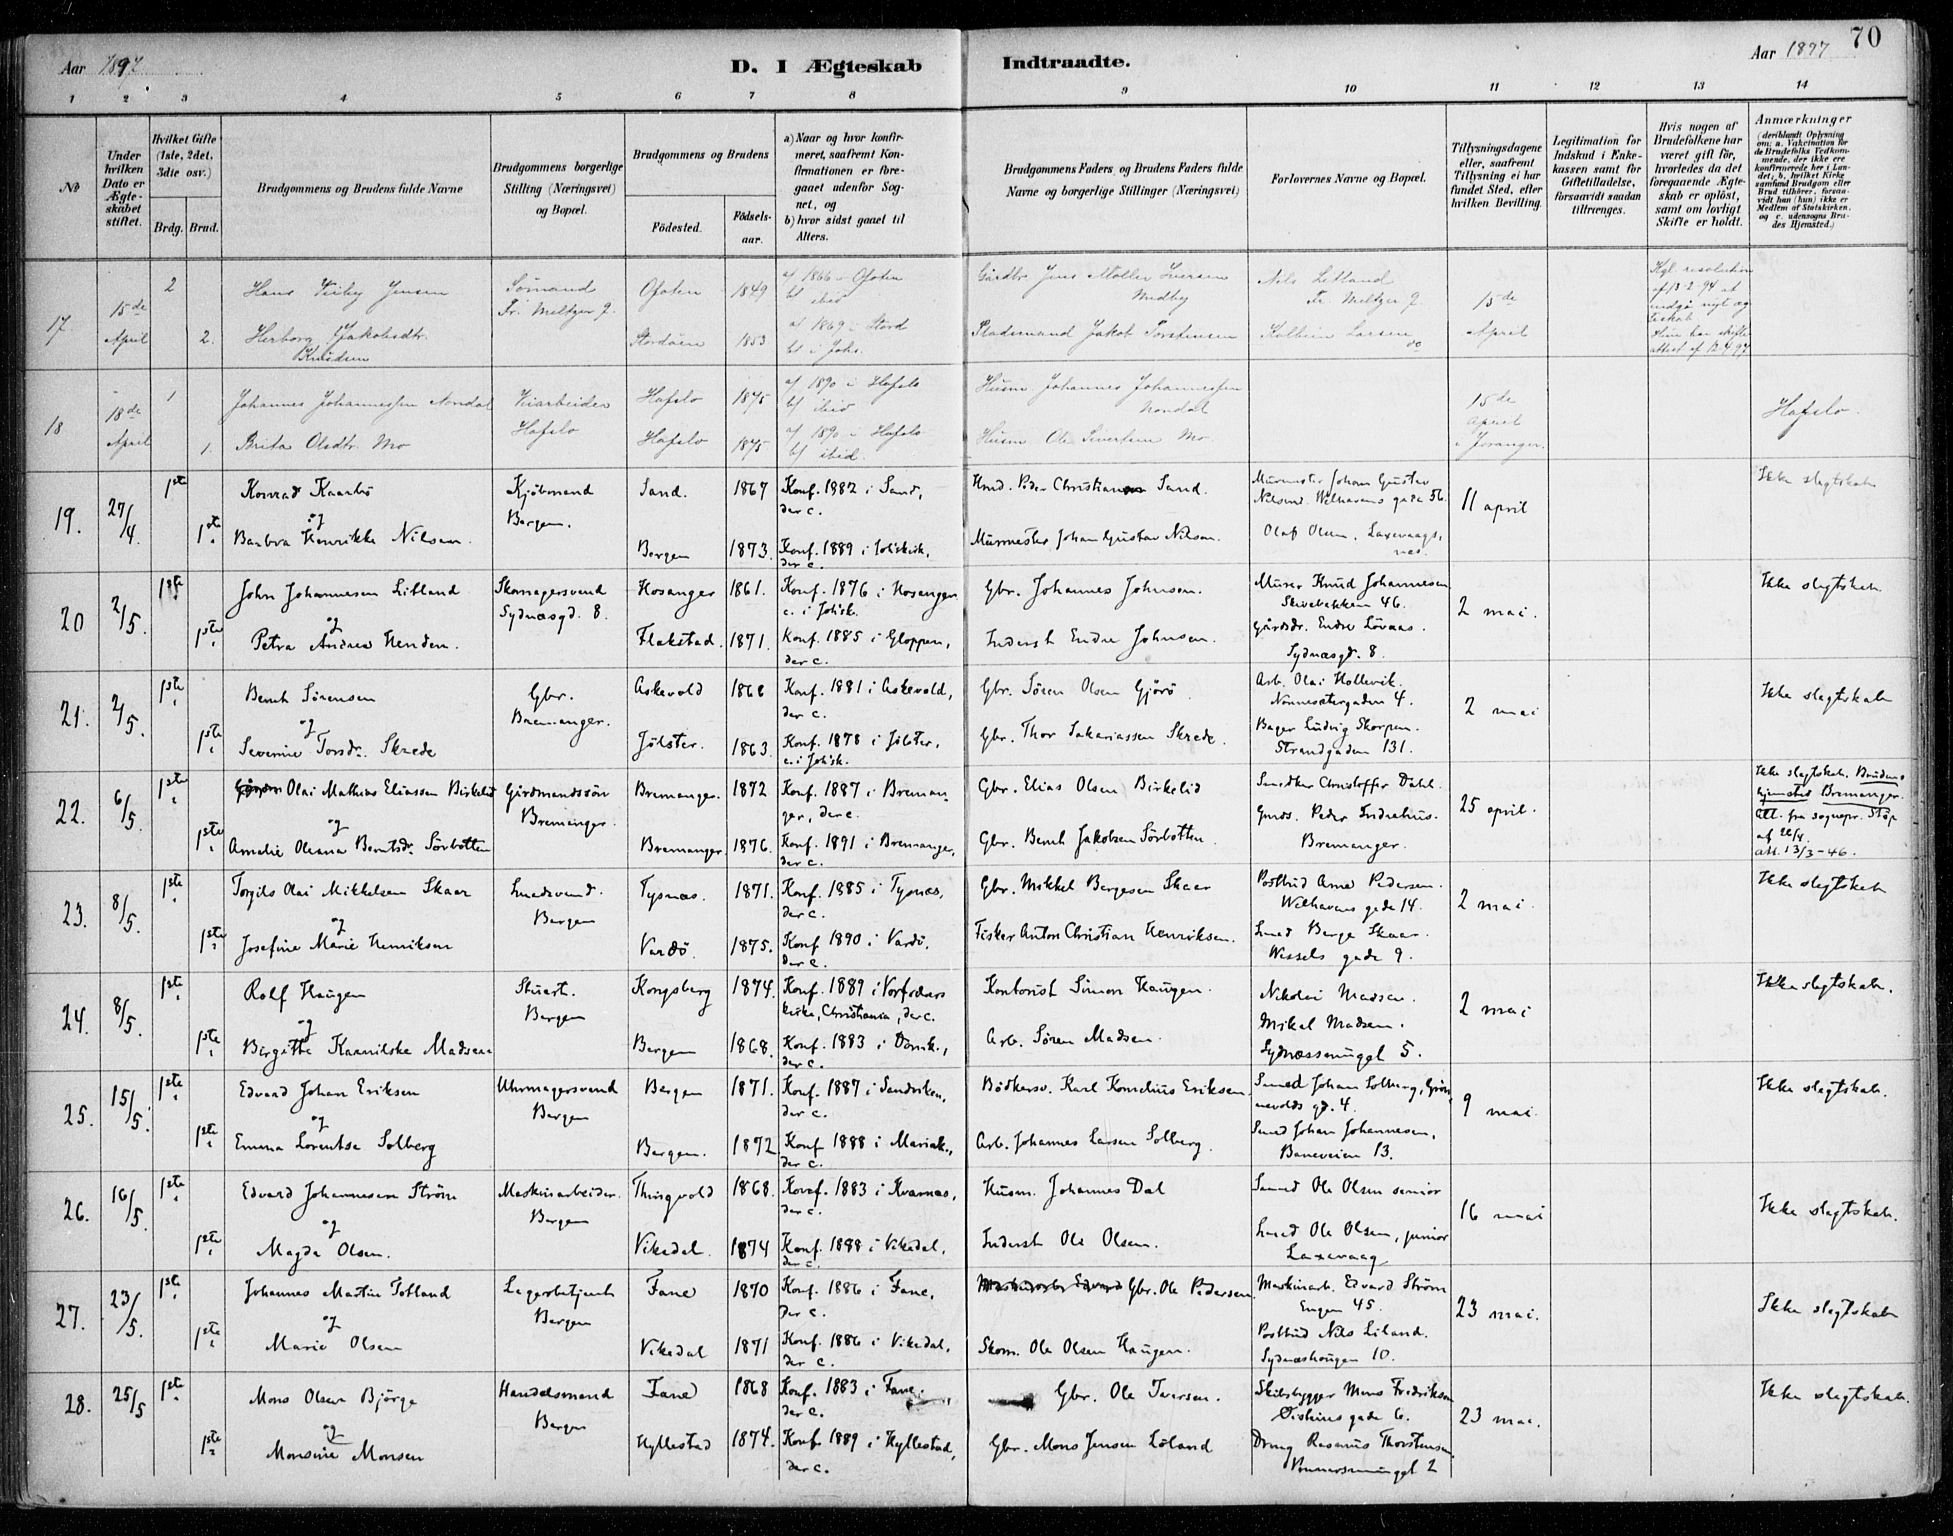 70
Aar 1897
D. I Ægteskab Indtraadte.
Aar 1897
1 2 3 4 5 6 7 8 9 10 11 12 13 14
No
Under hvilken Dato er Ægteskabet stiftet.
Hvilket Gifte (1ste, 2det, 3die osv.)
Brdg. Brud.
Brudgommens og Brudens fulde Navne
Brudgommens borgerlige Stilling (Næringsvei) og Bopæl.
Brudgommens og Brudens
Fødested.
Fødsels-aar.
a) Naar og hvor konfirmeret, saafremt Konfirmationen er foregaaet udenfor Sognet, og
b) hvor sidst gaaet til Alters.
Brudgommens Faders og Brudens Faders fulde Navne og borgerlige Stillinger (Næringsvei)
Forlovernes Navne og Bopæl.
Tillysningsdagene eller, saafremt Tillysning ei har fundet Sted, efter hvilken Bevilling.
Legitimation for Indskud i Enkekassen samt for Giftetilladelse, forsaavidt saadan tiltrænges.
Hvis nogen af Brudefolkene har været gift før, hvorledes da det foregaaende Ægteskab er opløst, samt om lovligt Skifte er holdt.
Anmærkninger
(deriblandt Oplysning om: a. Vakcination for de Brudefolks Vedkommende, der ikke ere konfirmerede her i Landet, b. hvilket Kirkesamfund Brudgom eller Brud tilhører, forsaavidt han (hun) ikke er Medlem af Statskirken, og c. udensogns Brudes Hjemsted.)
17 15de April 2 Hans Jensen Sømand Fr. Meltzer g. Ofoten 1849 af 1866 i Ofoten b) ibid Gårdbr. Jens Möller Iversen Nils Litland Fr. Meltzer g. 15de April Kgl. resolution af 13-2-94
2. Herborg Jakobsdtr. Knudsen Stordøen 1853 a) 1869 i Stord b) i Johs. Jakob Torstensen Kolbein Larsen do
18 18de April 1 Johannes Johannessen Nondal Veiarbeider Hafslo Hafslo 1875 a) 1890 i Hafslo b) ibid Husm. Johannes Johannessen Nondal 15de April i Joranger. Hafslo.
1. Brita Olsdtr. Mo Hafslo 1875 a) 1890 i Hafslo b) ibid. Husm. Ole Sivertsen Mo.
19. 27/4 1ste Konrad Kaarbø Kjøbmand Bergen. Sand. 1867 Konf. 1882 i Sand, der c. Peder Christian Sand. Murmester Johan Gustav Nilsen. Welhavens gade 56. 11 april Ikke slegtskab
og
1ste Barbra Henrikke Nilsen. Bergen 1873. Konf. 1889 i Johskirk, der c. Murmester Johan Gustav Nilsen. Olaf Olsen, Laxevaagsnes.
20 2/5. 1ste John Johannesen Litland Skomagersvend Sydnæsgd. 8. Hosanger 1861. Konf. 1876 i Hosanger c. i Johsk. Gbr. Johannes Johnsen. Murer Knud Johannesen Skivebakken 46. 2 mai. Ikke slegtskab.
og
1ste Petra Andrea Henden. Flakstad. 1871. Konf. 1885 i Gloppen, der c. Inderst Endre Johnsen. Gårdbr. Endre Løvaas. Sydnæsgd. 8.
21. 2/5. 1ste Bernh Sørensen Gbr. Bremanger. Askevold 1868 Konf. 1881 i Askevold, der c. Gbr. Søren Olsen Gjörö Arb. Olai Hollevik. Nonnestergaden 4. 2 mai Ikke slegtskab
og
1ste Severine Torsdr. Skrede Jølster. 1863. Konf. 1878 i Jölster, c. i Johsk. Gbr. Thor Sakariassen Skrede. Bager Ludvig Skorpen. Strandgaden 131.
22. 6/5. 1ste Olai Mathias Eliassen Birkelid Gårdmandssön Bremanger. Bremanger. 1872 Konf. 1887 i Bremanger, der c. Gbr. Elias Olsen Birkelid Snedker Christoffer Dahl. 25 april. Ikke slegtskab. Brudens hjemsted Bremanger. Att. fra sognepr. Støp af 22/4. att. 13/3-46.
og
1ste Amalie Oleana Berntsdr. Sörbotten Bremanger. 1876. Konf. 1891 i Bremanger, der c. Gbr. Bernh Jakobsen Sörbotten Gmds. Peder Indrehus. Bremanger.
23. 8/5. 1ste Torgils Olai Mikkelsen Skaar Smedsvend. Bergen Tysnæs. 1871. Konf. 1885 i Tysnæs, der c. Gbr. Mikkel Bergesen Skaar Postbud Arne Pedersen. Welhavens gade 14. 2 mai. Ikke slegtskab
og
1ste Josefine Marie Henriksen Vardö. 1875. Konf. 1890 i Vardö. der c. Fisker Anton Christian Henriksen. Smed Berge Skaar. Wessels gade 9.
24. 8/5. 1ste Rolf Haugen Stuert. Bergen Kongsberg 1874. Konf. 1889 i Vorfrelsers kirke, Christiania, der c. Kontorist Simon Haugen. Nikolai Madsen. 2 mai Ikke slegtskab.
og
1ste Bergitte Kaarnilske Madsen Bergen 1868. Konf. 1883 i Domk., der c. Arb. Søren Madsen. Mikal Madsen. Sydnæssmuget 5.
25. 15/5. 1ste Edvard Johan Eriksen Uhrmagersvend Bergen Bergen 1871. Konf. 1887 i Sandviken, der c. Bödkersv. Karl Kornelius Eriksen. Smed Johan Solberg, Grönnevolds gd. 4. 9 mai. Ikke slegtskab.
og
1ste Emma Lorentse Solberg Bergen. 1872 Konf. 1888 i Mariak., der c. Arb. Johannes Larsen Solberg. Smed Johan Johannesen, Baneveien 13.
26. 16/5. 1ste Edvard Johannesen Strøm Maskinarbeider. Bergen Thingvold 1868. Konf. 1883 i Kvernæs, der c. Husm. Johannes Dal Smed Ole Olsen senior 16 mai Ikke slegtskab.
og
1ste Magda Olsen. Vikedal. 1874 Konf. 1888 i Vikedal, der c. Inderst Ole Olsen. Smed Ole Olsen, junior Laxevaag
27. 23/5. 1ste Johannes Martin Totland Lagerbetjent Bergen Fane 1870 Konf. 1886 i Fane, der c. Gbr. Ole Pedersen Maskinarb. Edvard Strøm Engen 45. 23 mai. Ikke slegtskab
og
1ste Marie Olsen Vikedal 1871 Konf. 1886 i Vikedal, der c. Skom. Ole Olsen Haugen. Postbud Nils Liland. Sydnæshougen 10.
28. 25/5 1ste Mons Olsen Bjørge Handelsmand Bergen Fane 1868 Konf. 1883 i Fane. der c. Gbr. Ole Iversen. Skibsbygger Mons Fredriksen gade 6. 23 mai. Ikke slegtskab.
og
1ste Monsine Monsen Hyllestad 1874. Konf. 1889 i Hyllestad, der c. Gbr. Mons Jensen Löland Rasmus Thorstensen 2